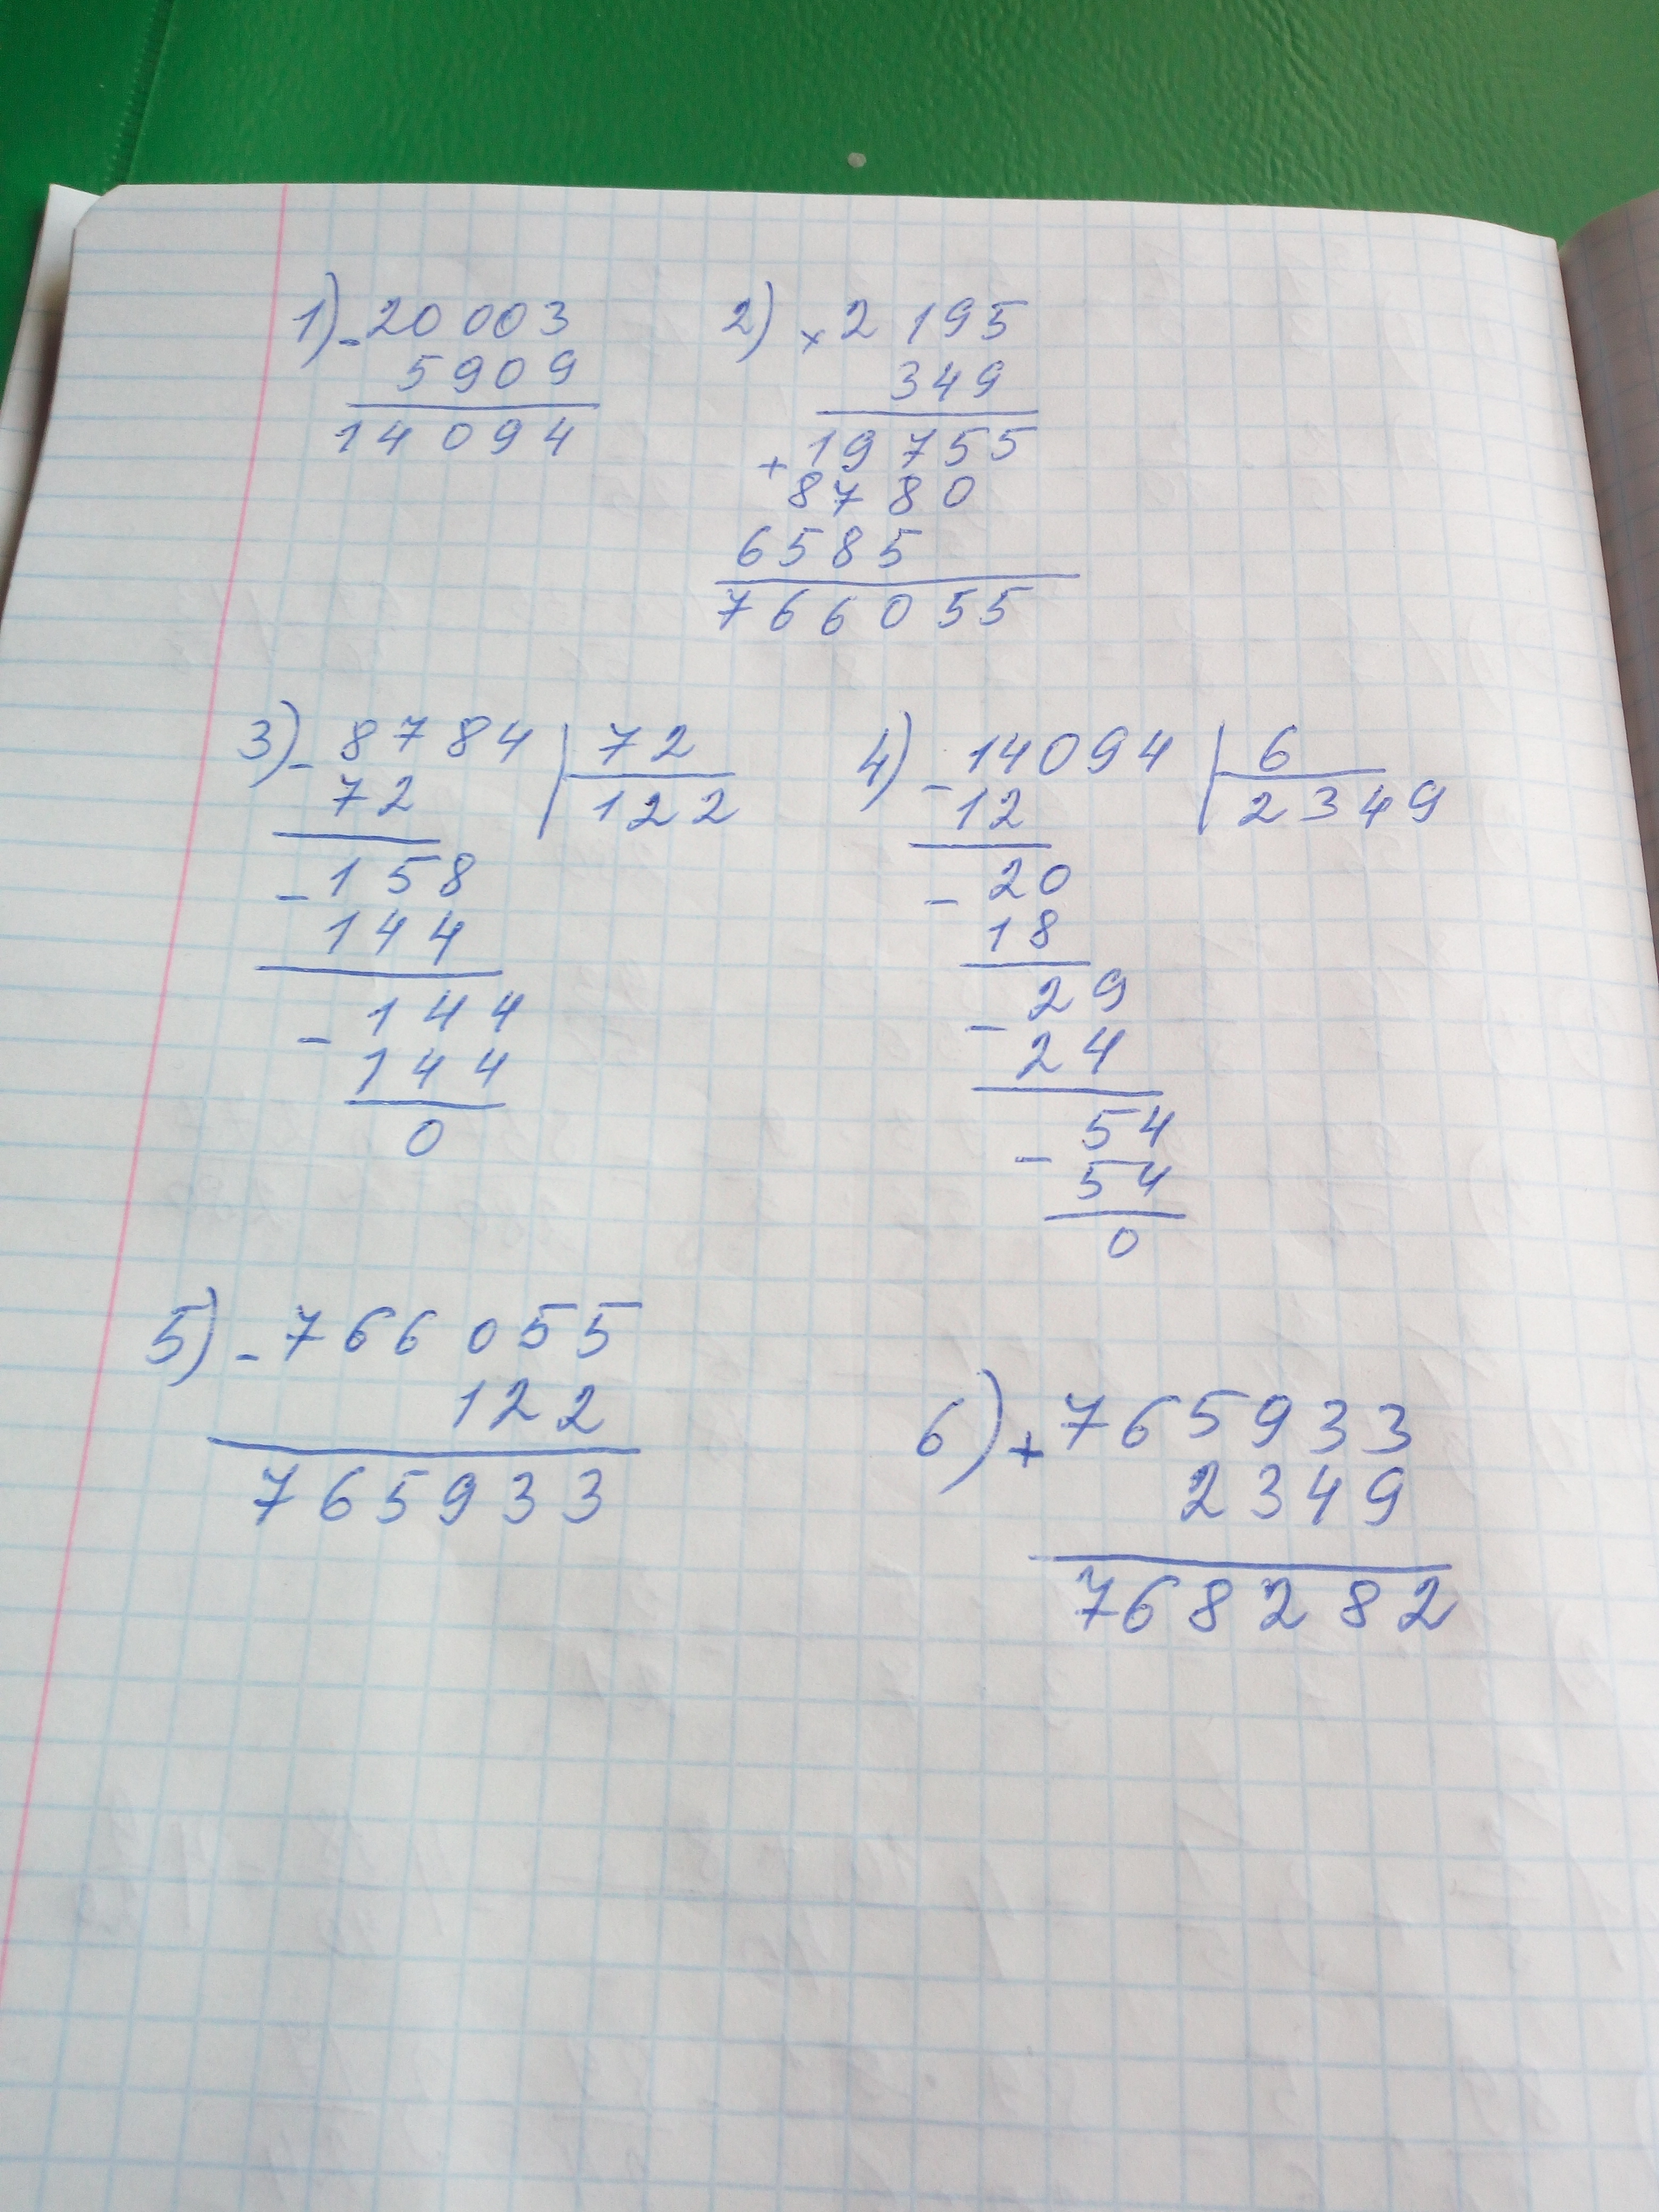 1) - 20 003
5909
14 094
2) × 2 195
349
+ 19 755
8780
6585
766055
3) - 8784 | 72
72 122
- 158
144
- 144
144
0
4) - 14094 | 6
12 2349
- 20
18
- 29
24
- 54
54
0
5) - 766 055
122
765933
6) + 765933
2349
768282